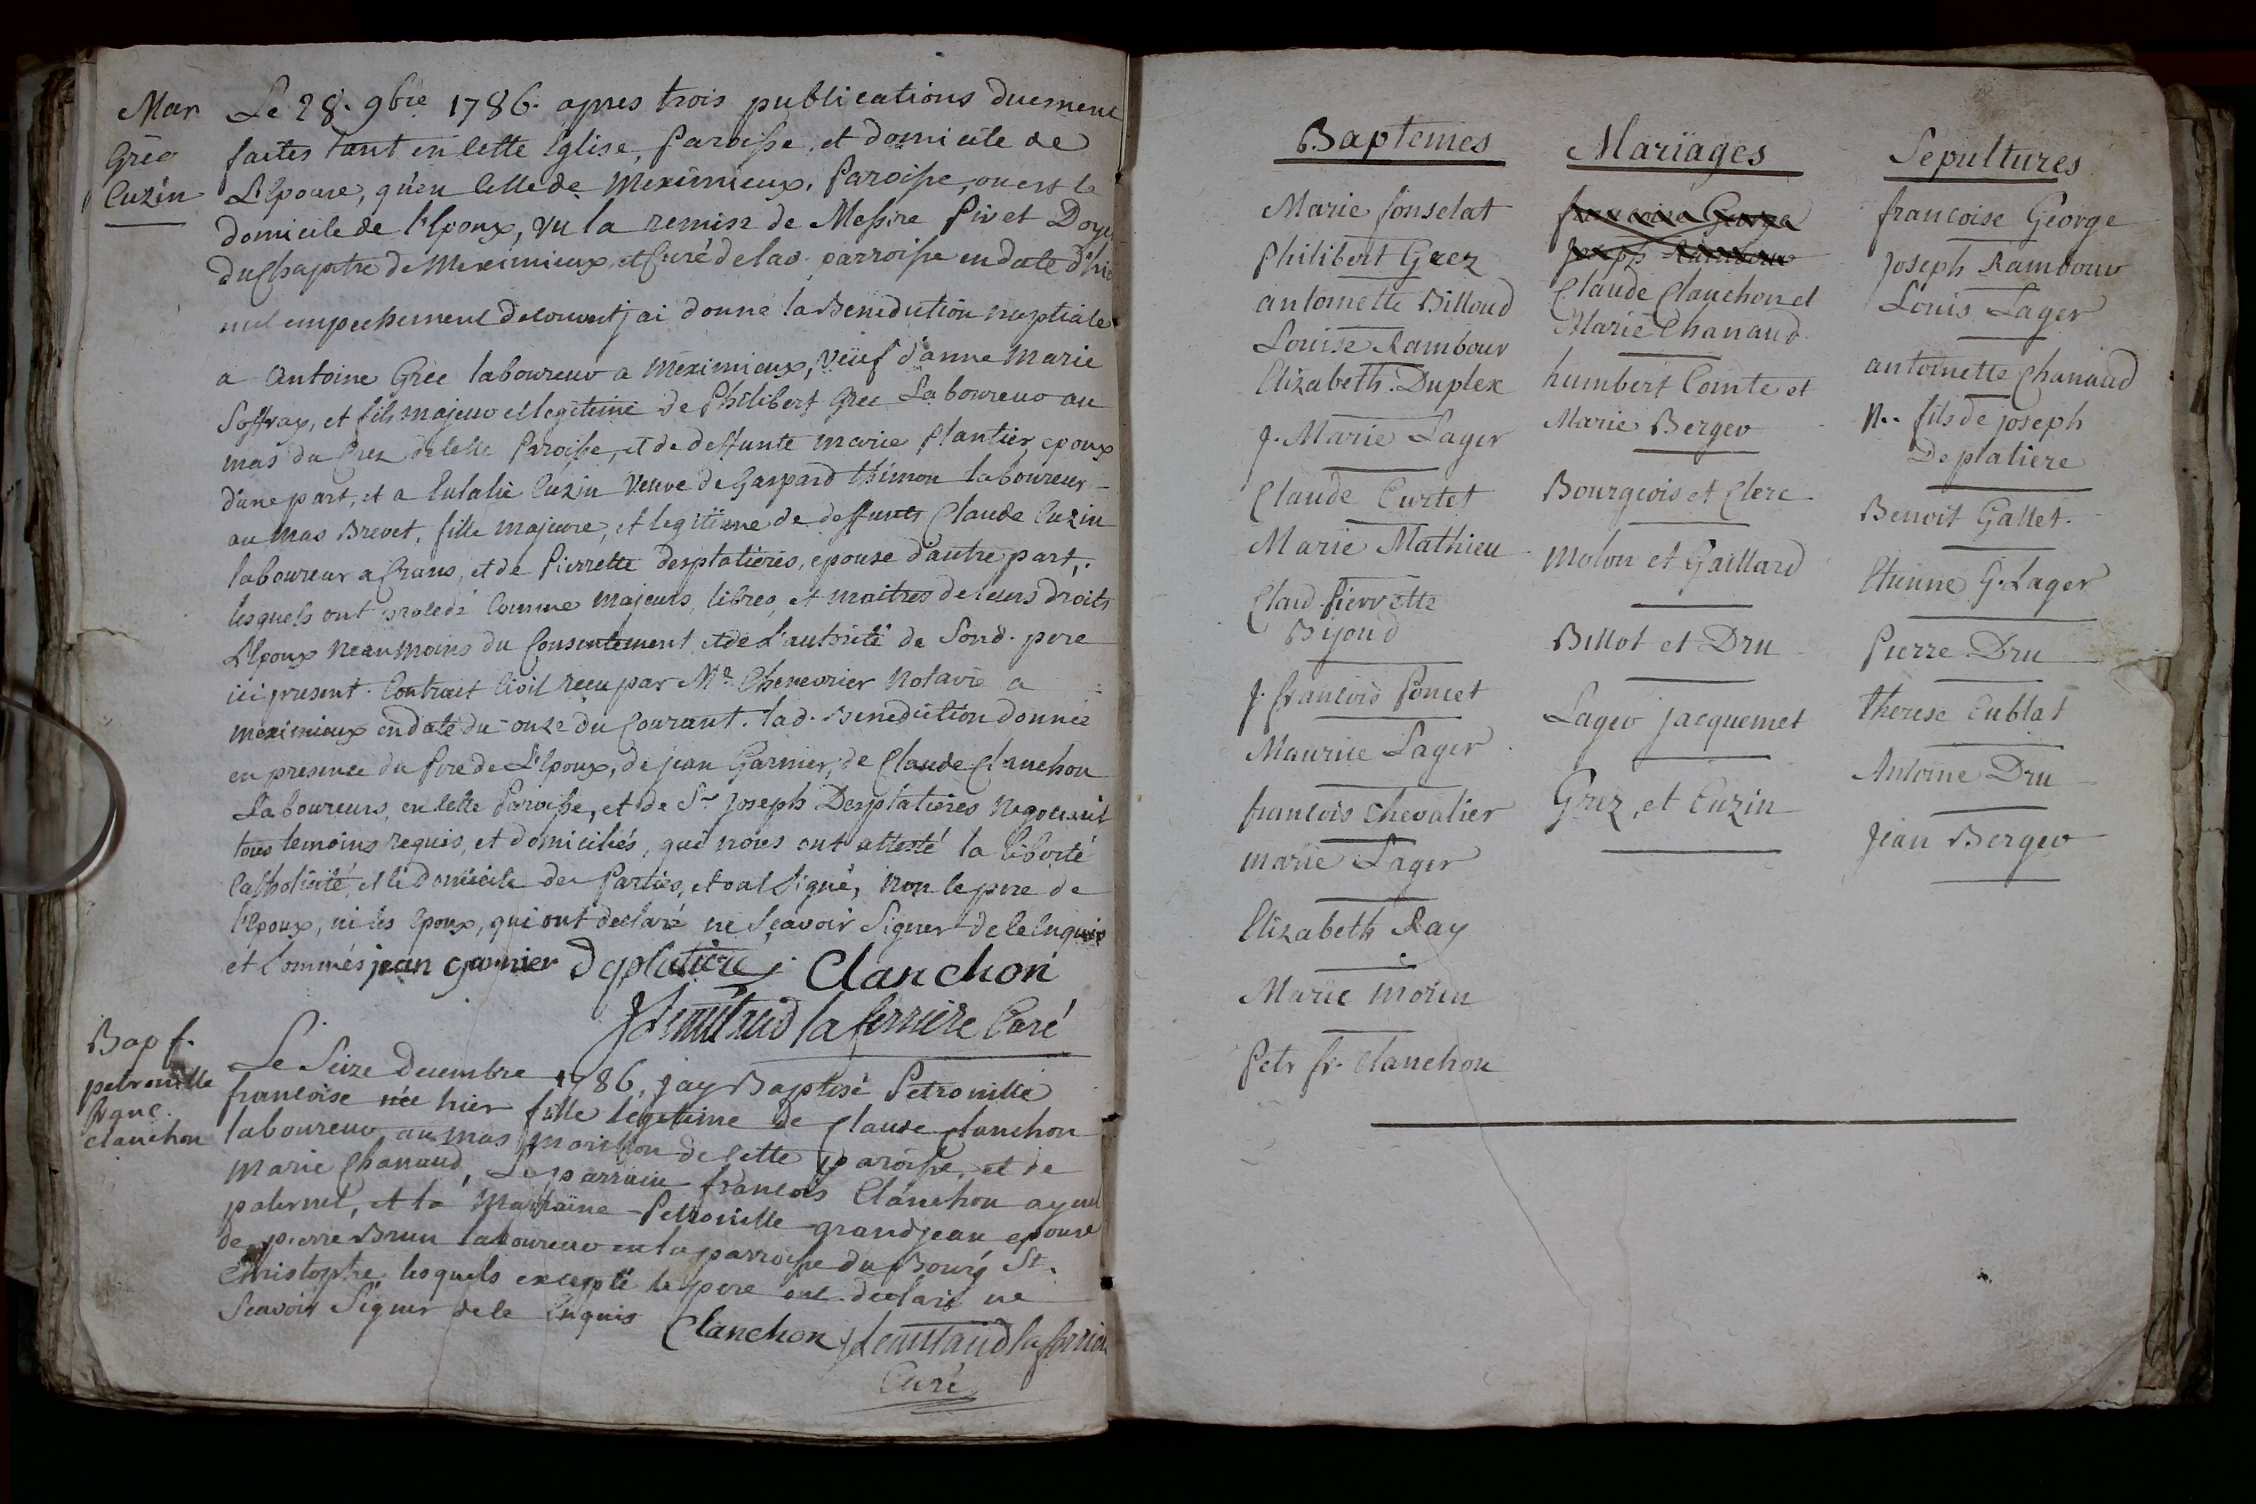 Mar
Gréc
Cuzin
Le 28. 9bre 1786. apres trois publications duement
faites tant en cette Eglise, Paroisse, et domicile de
L'Epouse, qu'en celle de Meximieux, Paroisse, ou est le
domicile de l'Epoux, vu la remise de Messire Pivet Doye
du Chapitre de Meximieux, et Curé de lad. parroisse en date d'hie
nul empechement decouvert j'ai donné la Benediction nuptiale
a Antoine Gréc laboureur a Méximieux, veüf d'anne Marie
Soffray, et fils majeur et legitime de Philibert Grec Laboureur au
mas du Grez de cette Paroisse, et de deffunte marie Plantier, epoux
d'une part, et a Eulalie Cuzin veuve de Gaspard thimon laboureur
au mas Brevet, fille majeure, et legitime de deffunts Claude Cuzin
laboureur a Crans, et de Pierrette desplatieres, epouse d'autre part,
lesquels ont procedé comme majeurs, libres, et maitres de leurs droits
L'Epoux neanmoins du Consentement, et de L'autorité de Sond. pere
ici present. Contract Civil recu par Me. Chenevrier Notaire a
meximieux en date du onze du Courant. lad. Benediction donnée
en presence du Pere de L'Epoux, de jean Garnier, de Claude Clanchon
Laboureurs, en cette Paroisse, et de Sr Joseph Desplatieres Negociant
tous temoins requis, et domiciliés, qui nous ont attesté la liberté
Catholicité, et le domicile des Parties, et ont Signé, non le pere de
l'Epoux, ni les Epoux, qui ont declaré ne Sçavoir Signer de ce Enquis
et Sommés jean garnier Deplatiere Clanchon
la ferriere Curé
Bap f.
petronille
franc.
clanchon
Le Seize Decembre 1786, jay Baptisé Petronille
francoise née hier fille legitime de Claude Clanchon
laboureur au mas de cette paroisse, et de
Marie Chanaud, Le parrain francois Clanchon ayeul
paternel, et la Marraine Petronille grandjean epouse
de pierre Brun laboureur en la parroisse du Bourg St.
Christophe, lesquels excepté le pere ont declaré ne
Sçavoir Signer de ce Enquis Clanchon
Curé
Baptemes
Marie fonselat
Philibert Grez
antoinette Billoud
Louise Rambour
Elizabeth Duplex
J. Marie Lager
Claude Curtet
Marie Mathieu
Claud. Pierrette
Bijoud
J. francois Poncet
Maurice Lager
francois chevalier
marie Lager
Elizabeth Ray
Marie Morin
Petr fr. Clanchon
Mariäges
francoise George
Joseph Rambour
Claude Clanchon et
Marie Chanaud
humbert Comte et
Marie Berger
Bourgeois et Clerc
Molon et Gaillard
Billot et Dru
Lager jacquemet
Grez, et Cuzin
Sepultures
francoise George
Joseph Rambour
Louis Lager
antoinette Chanaud
N.. fils de joseph
Deplatiere
Benoit Gallet
Etienne G. Lager
Pierre Dru
therese Cublat
Antoine Dru
Jean Berger